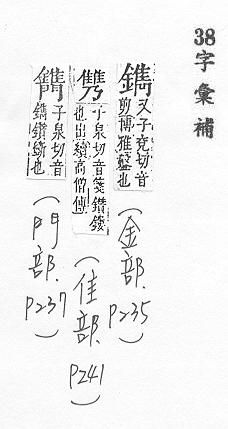 38字彙補
鐫 又子兖切音
剪博雅䥴也
子泉切音箋鑽
也出續高僧傳
子泉切音
鐫鑽也
(金部.P235)
(隹部.P241)
(門部.P237)